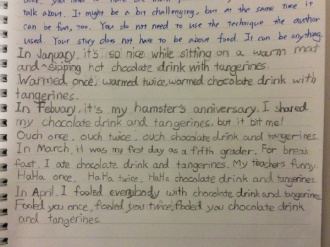 talk about. It might be a bit challenging, but at the same time it
can be fun, too. You do not need to use the technique the author
used. Your story does not have to be about food. It can be anything.
In January, it's so nice while sitting on a warm mat
and sipping hot chocolate drink with tangerines.
Warmed once, warmed twice, warmed chocolate drink with
tangerines.
In Febuary, it's my hamster's anniversary. I shared
my chocolate drink and tangerines, but it bit me!
Ouch once, ouch twice, ouch chocolate drink and tangerines.
In March, it was my first day as a fifth grader. For break
fast, I ate chocolate drink and tangerines. My teachers funny.
HaHa once, HaHa twice, HaHa chocolate drink and tangerines.
In April, I fooled everybody with chocolate drink and tangerines.
Fooled you once, fooled you twice, fooled you chocolate drink
and tangerines.